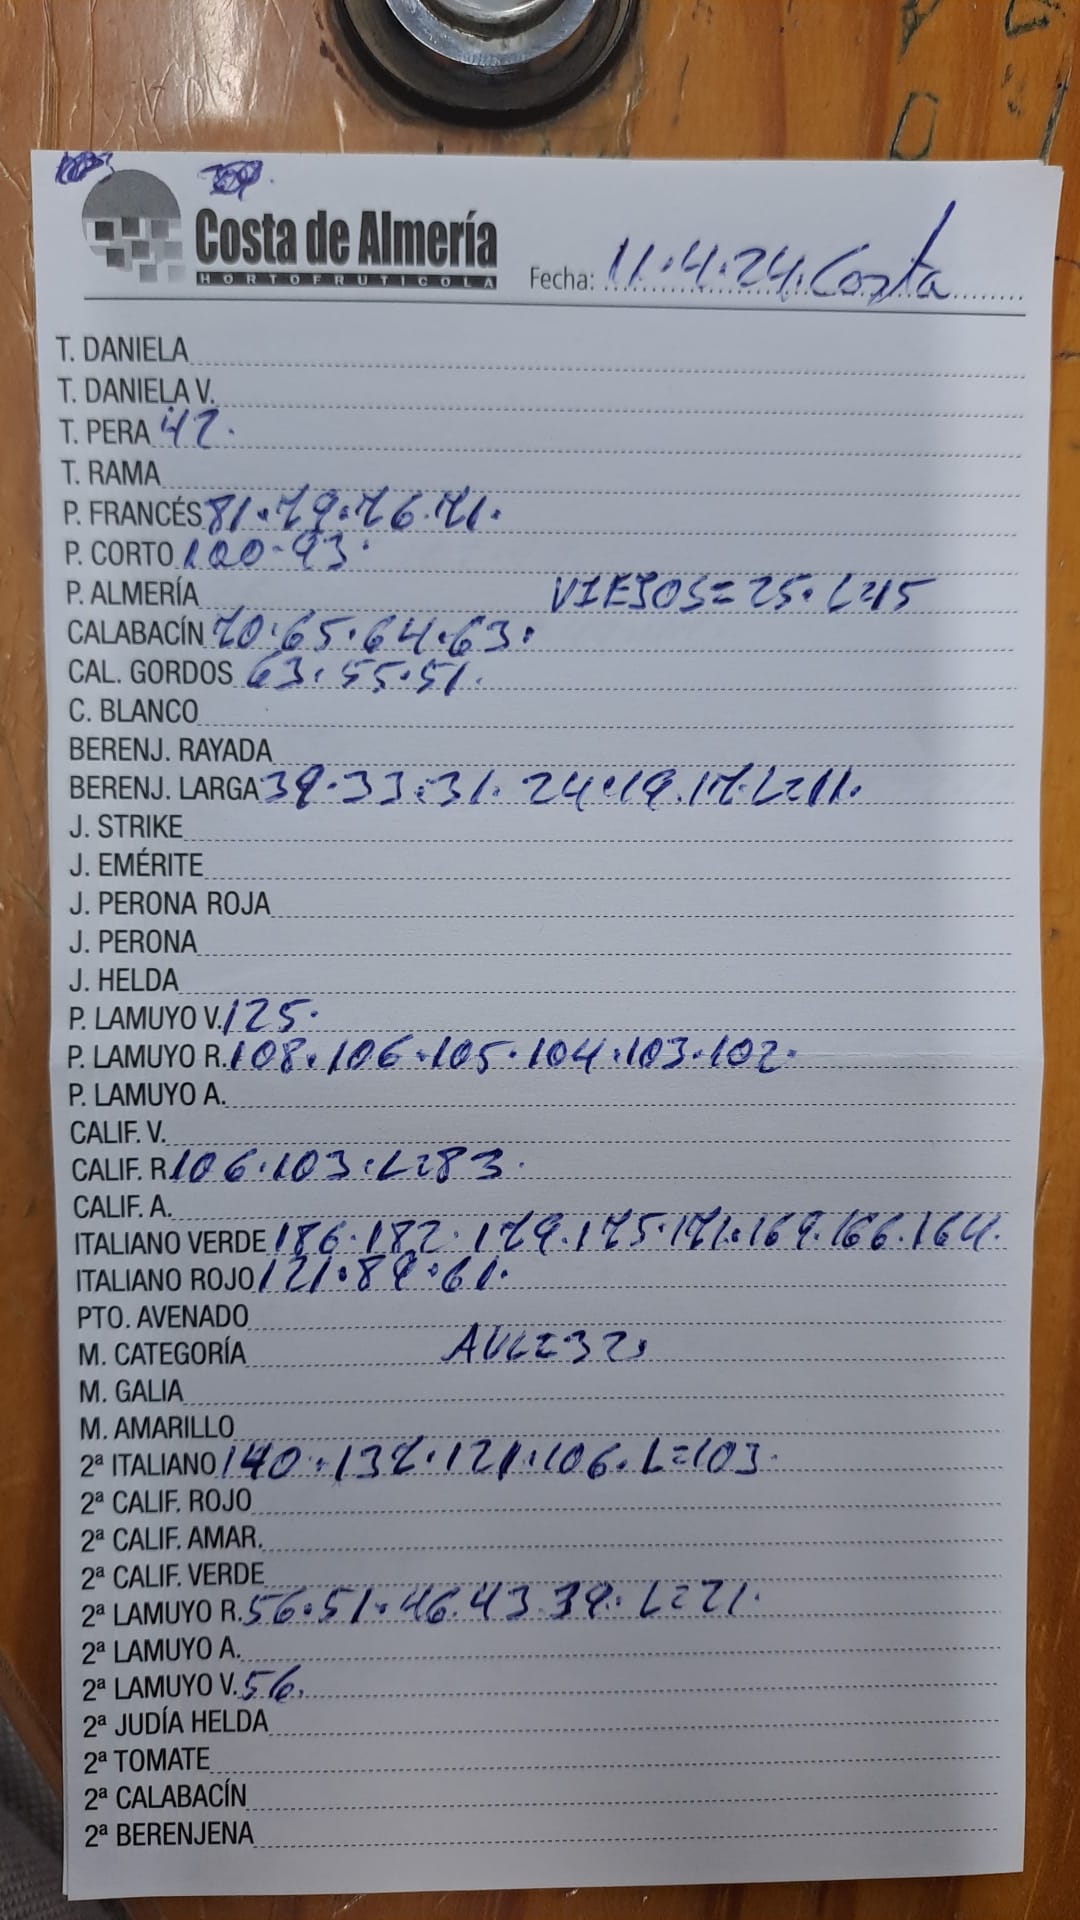 Costa de Almería
HORTOFRUTICOLA
Fecha: 11.4.24. Costa
T. DANIELA
T. DANIELA V.
T. PERA 42.
T. RAMA
P. FRANCÉS 81.79.76.71.
P. CORTO 100.93.
P. ALMERÍA VIEJOS=25.L=15
CALABACÍN 70.65.64.63.
CAL. GORDOS 63.55.51.
C. BLANCO
BERENJ. RAYADA
BERENJ. LARGA 39.33.31.24.19.17.L=11.
J. STRIKE
J. EMÉRITE
J. PERONA ROJA
J. PERONA
J. HELDA
P. LAMUYO V. 125.
P. LAMUYO R. 108.106.105.104.103.102.
P. LAMUYO A.
CALIF. V.
CALIF. R 106.103.L=83.
CALIF. A.
ITALIANO VERDE 186.182.179.175.171.169.166.164.
ITALIANO ROJO 121.89.61.
PTO. AVENADO
M. CATEGORÍA AVL=32.
M. GALIA
M. AMARILLO
2ª ITALIANO 140.137.121.106.L=103.
2ª CALIF. ROJO
2ª CALIF. AMAR.
2ª CALIF. VERDE
2ª LAMUYO R. 56.51.46.43.39.L=21.
2ª LAMUYO A.
2ª LAMUYO V. 56.
2ª JUDÍA HELDA
2ª TOMATE
2ª CALABACÍN
2ª BERENJENA